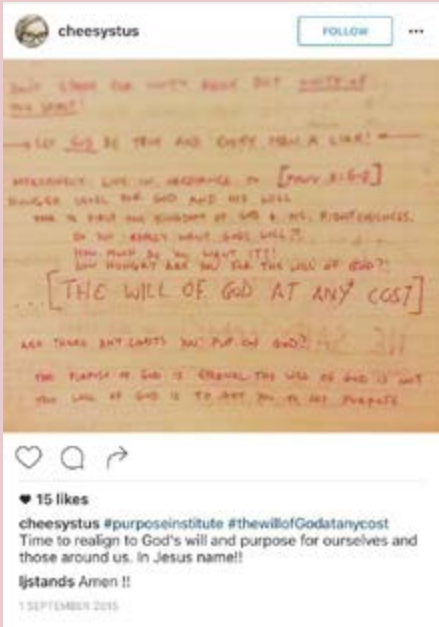 cheesystus
FOLLOW
DON'T STAND FOR UNITY ALONE BUT UNITY OF
THE SPIRIT!
LET GOD BE TRUE AND EVERY MAN A LIAR!
LIVE IN OBEDIANCE TO
HUNGER LEVEL FOR GOD AND HIS WILL
FIRST THE KINGDOM OF GOD & HIS RIGHTEOUSNESS.
DO YOU REALLY WANT GODS WILL?!
HOW MUCH DO YOU WANT IT?!
HOW HUNGRY ARE YOU FOR THE WILL OF GOD?!
...[THE WILL OF GOD AT ANY COST]
ARE THERE ANY LIMITS YOU PUT ON GOD?
THE PURPOSE OF GOD IS ETERNAL THE WILL OF GOD IS NOT
THE WILL OF GOD IS TO GET YOU TO HIS PURPOSE
15 likes
cheesystus #purposeinstitute #thewillofGodatanycost
Time to realign to God's will and purpose for ourselves and
those around us. In Jesus name!!
ljstands Amen !!
1 SEPTEMBER 2015